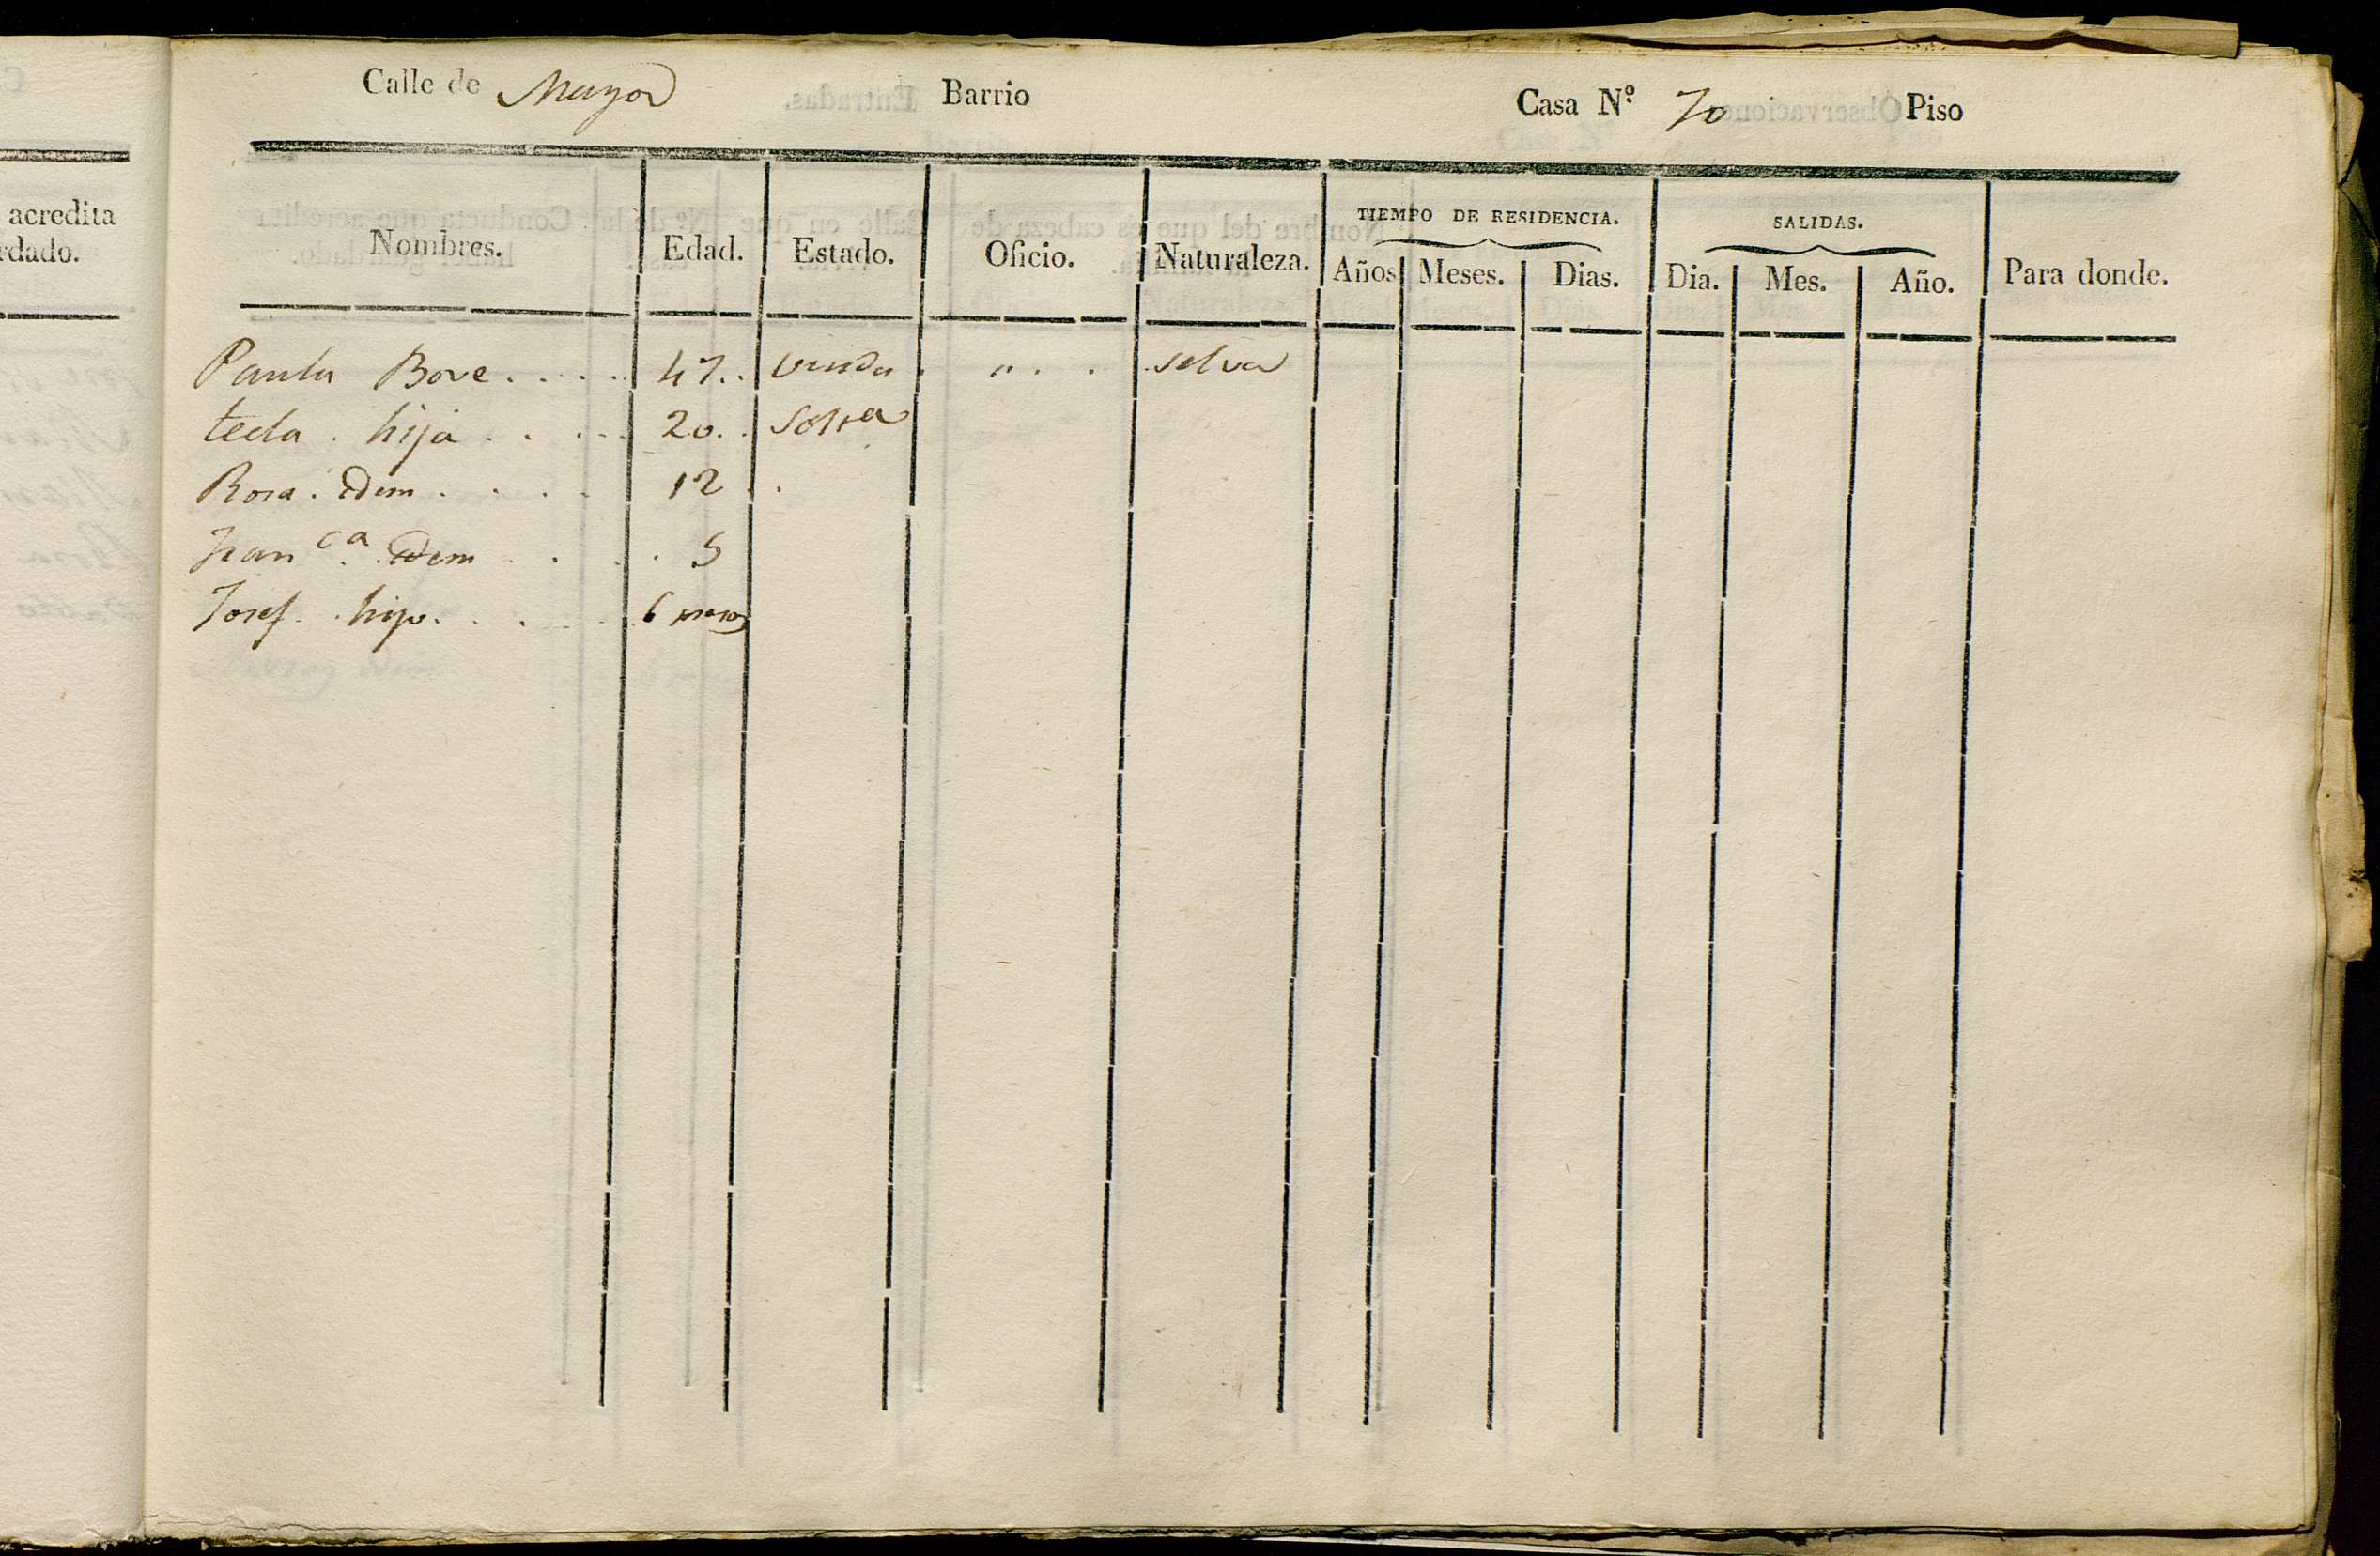 Calle de Mayor Barrio Casa Nº 70 Piso
acredita
rdado.
TIEMPO DE RESIDENCIA. SALIDAS.
Nombres. Edad. Estado. Oficio. Naturaleza. Años Meses. Dias. Dia. Mes. Año. Para donde.
Paula Bove . . . . . 47 . . viuda . " . . selva
tecla . hija . . . . . 20 . . Solra
Rosa . Idem . . . . 12 . .
Franca . Idem . . . . 5
Josef . . hijo . . . . 6 meses